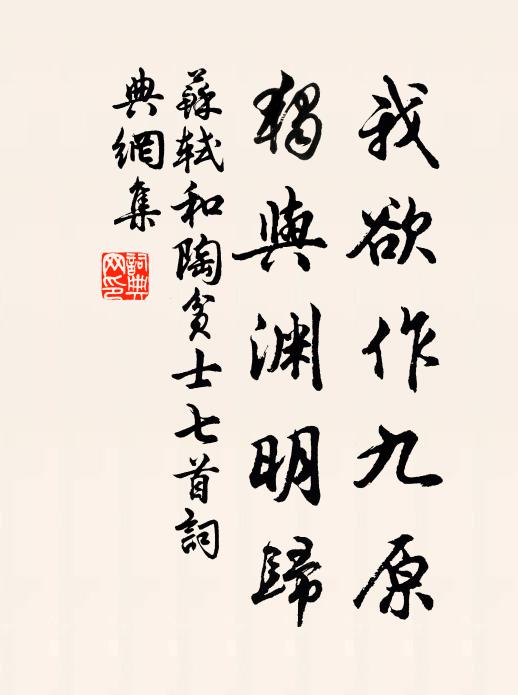 我欲作九原
獨與渊明歸
蘇軾和陶貧士七首詞
典網集
詞典
网印